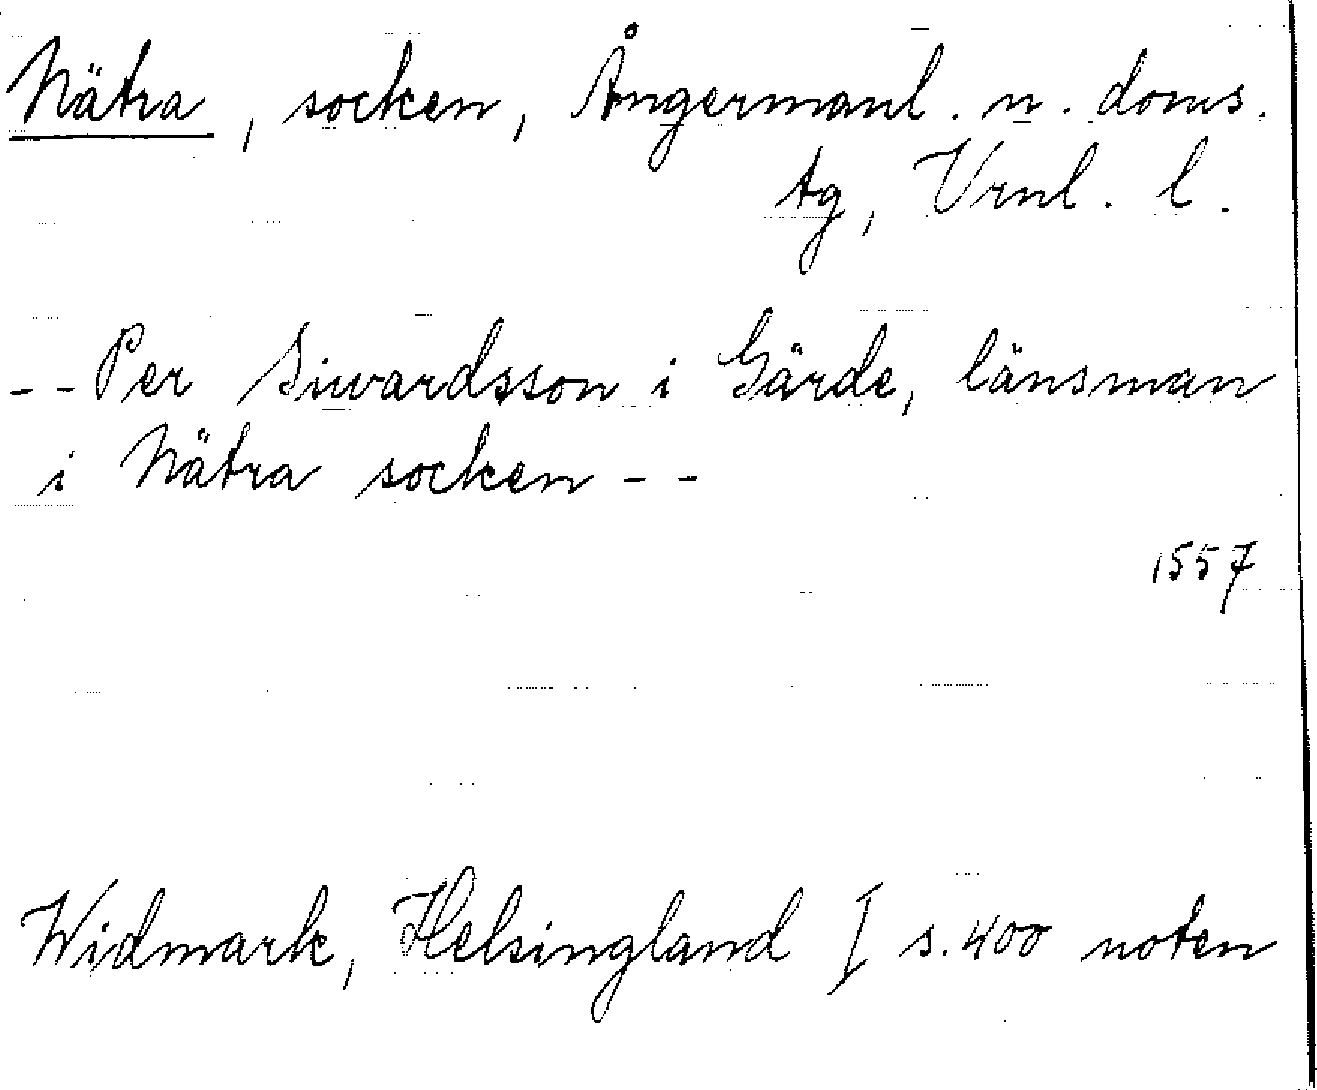 Nätra, socken, Ångermanl. n. doms.
tg, Vrnl. l.
- - Per Siwardsson i Gärde, länsman
i Nätra socken - -
1557
Widmark, Helsingland I s. 400 noten